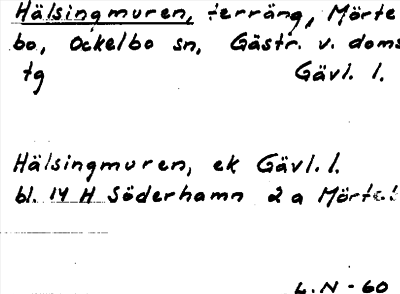 Hälsingmuren, terräng, Mörte
bo, Ockelbo sn, Gästr. v. doms
tg Gävl. l.
Hälsingmuren, ek Gävl. l.
bl. 14 H Söderhamn 2 a Mörteb
L.N - 60